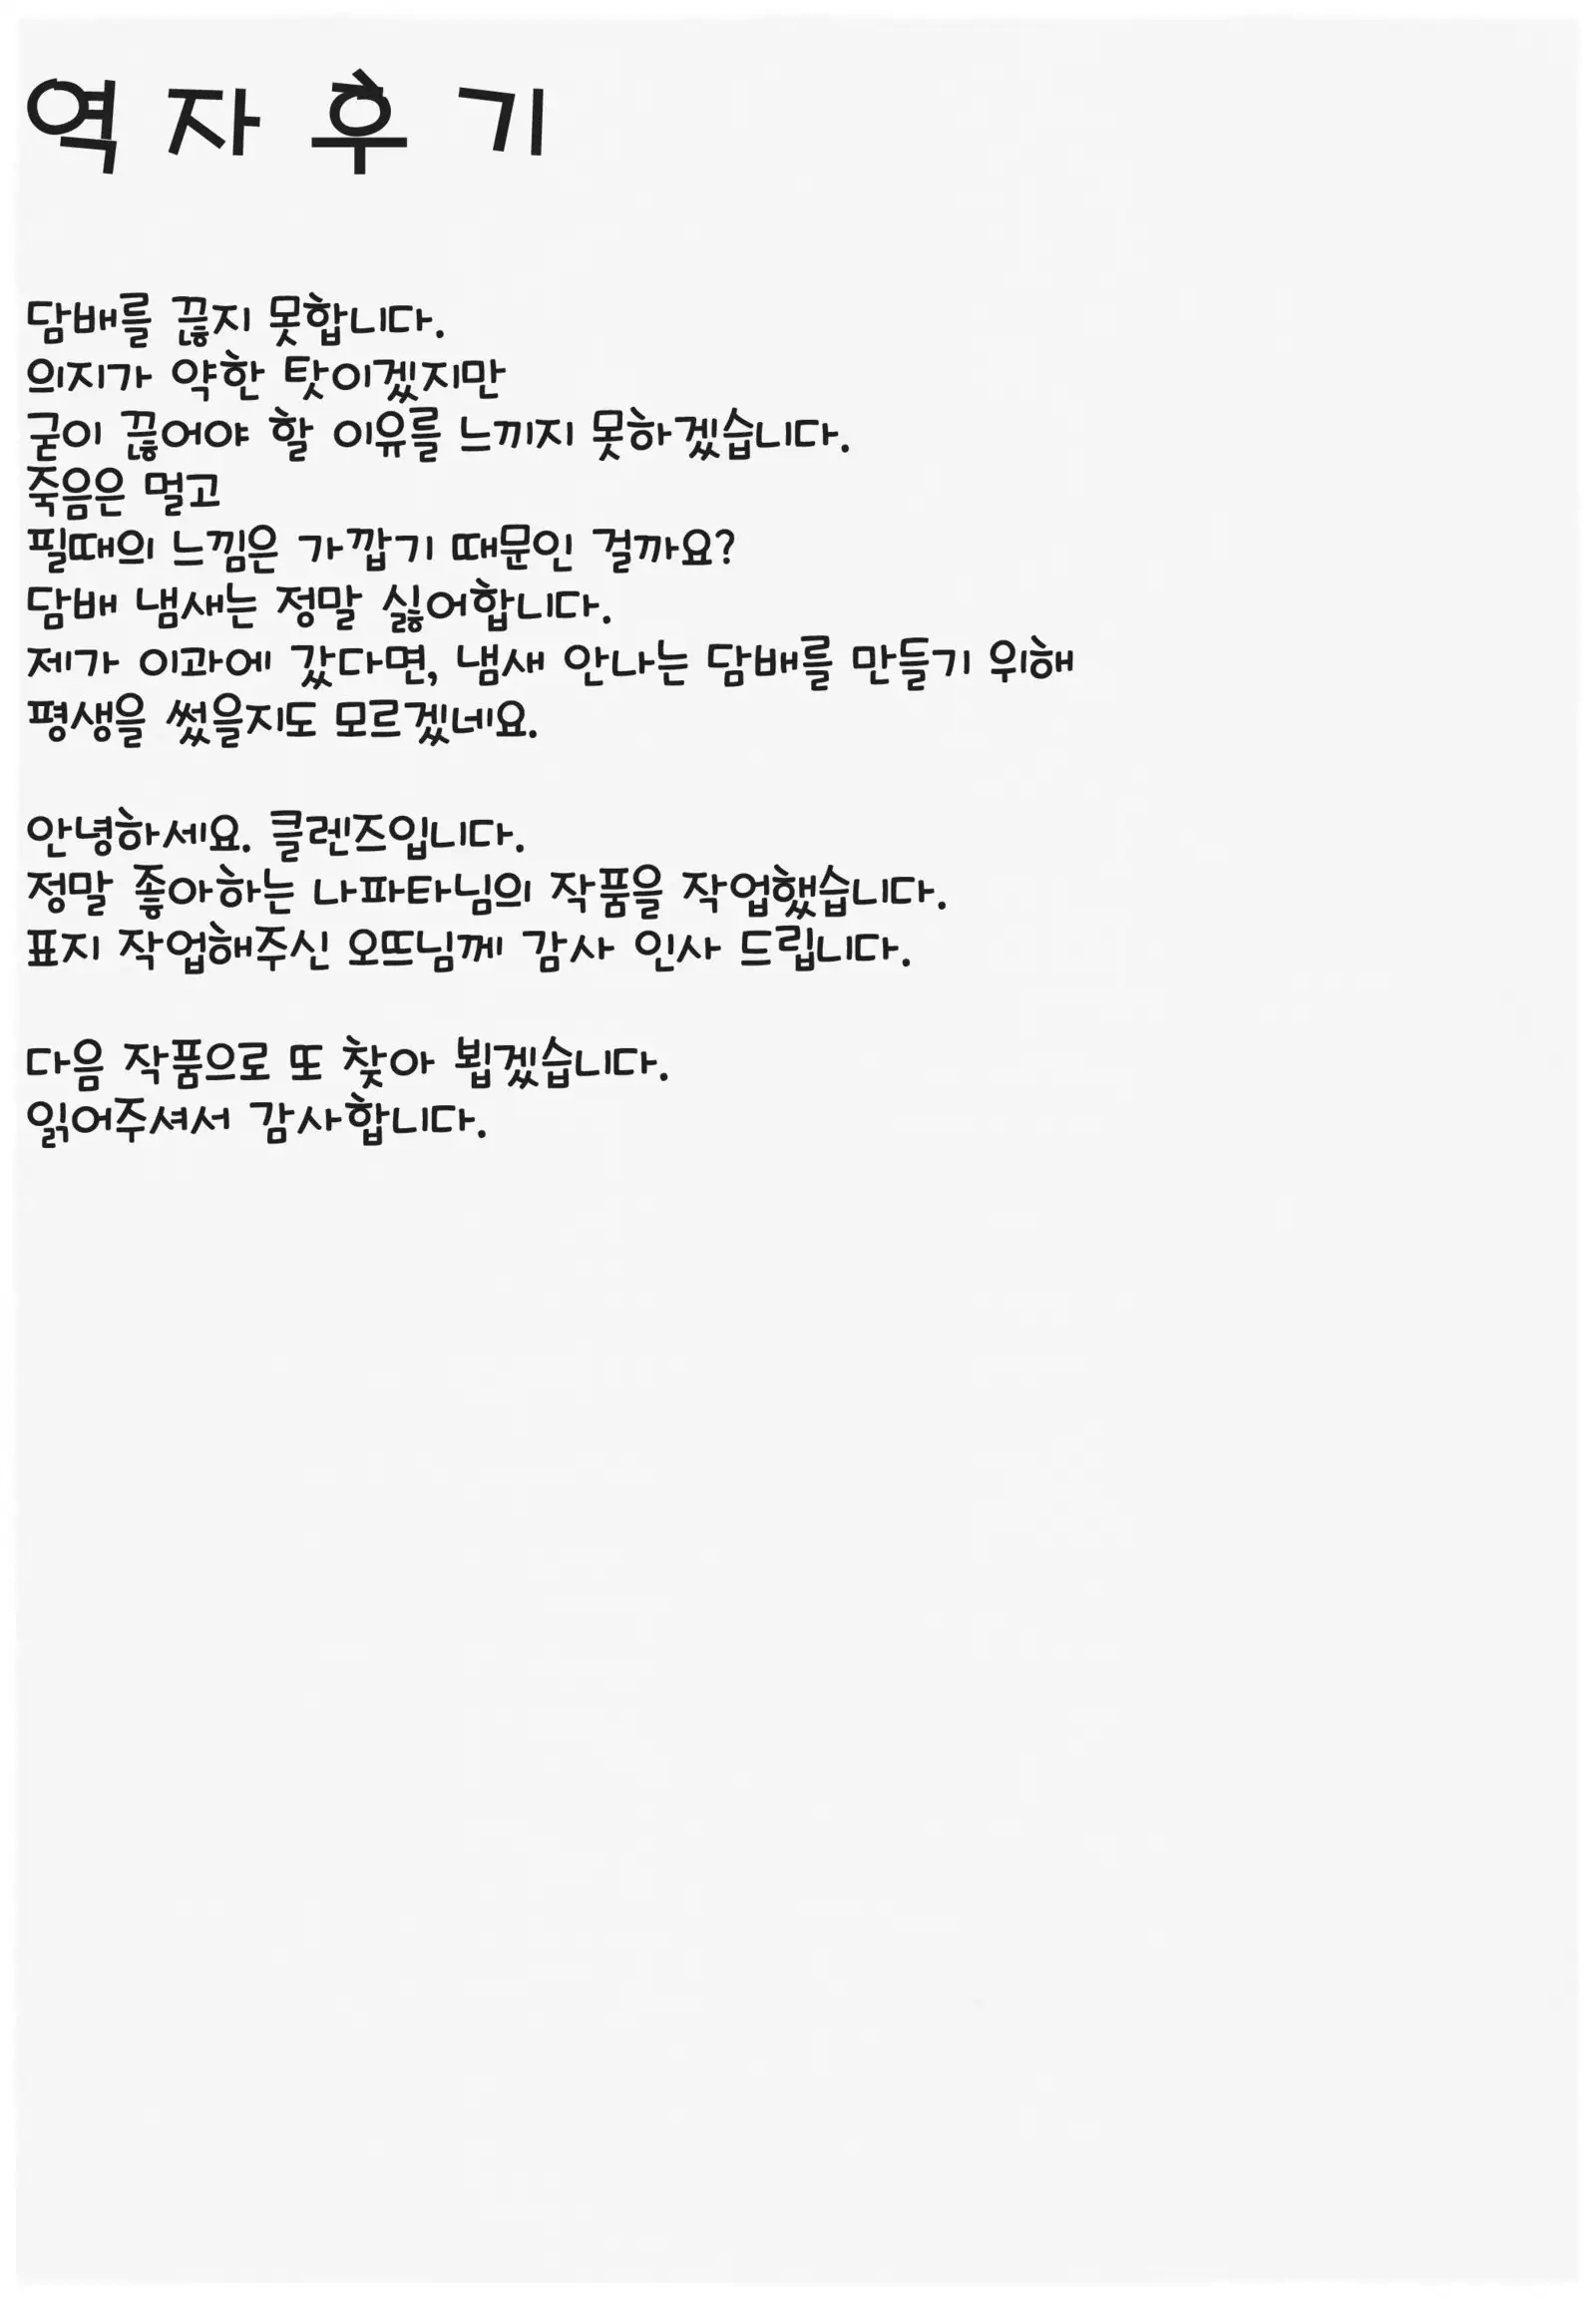 역 자 후 기
담배를 끊지 못합니다.
의지가 약한 탓이겠지만
굳이 끊어야 할 이유를 느끼지 못하겠습니다.
죽음은 멀고
필때의 느낌은 가깝기 때문인 걸까요?
담배 냄새는 정말 싫어합니다.
제가 이과에 갔다면, 냄새 안나는 담배를 만들기 위해
평생을 썼을지도 모르겠네요.
안녕하세요. 클렌즈입니다.
정말 좋아하는 나파타님의 작품을 작업했습니다.
표지 작업해주신 오뜨님께 감사 인사 드립니다.
다음 작품으로 또 찾아 뵙겠습니다.
읽어주셔서 감사합니다.